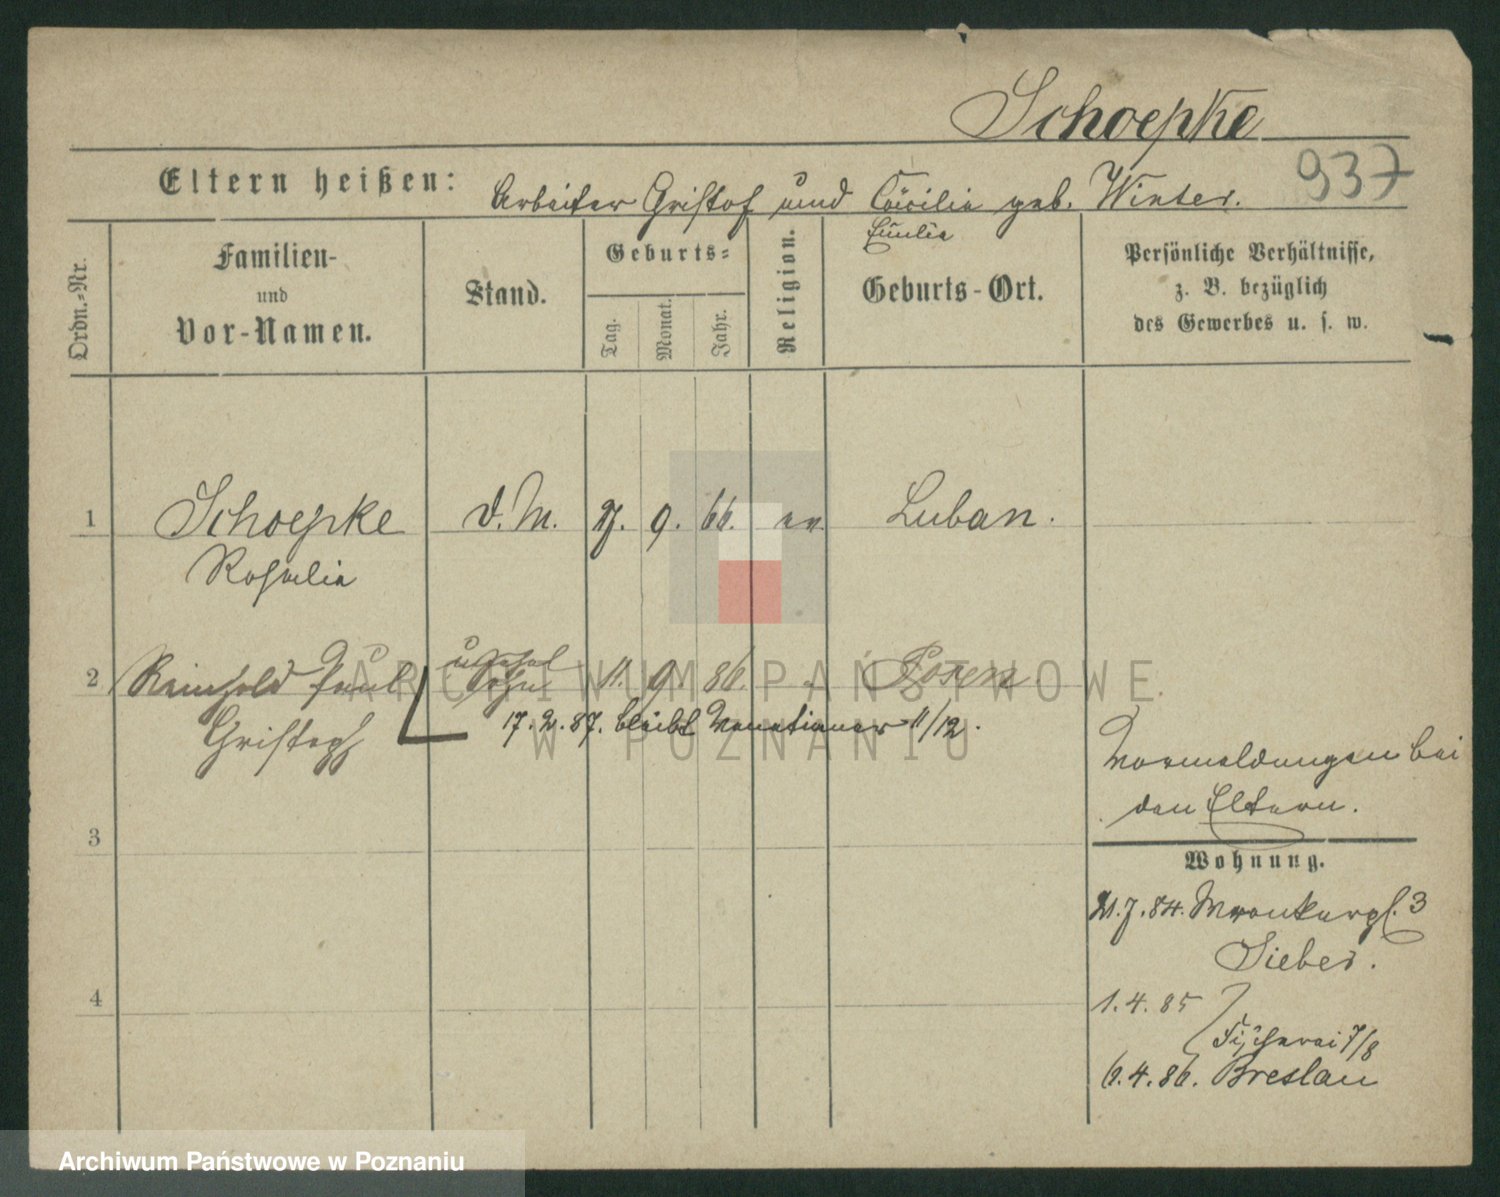 Schoepke
937
Eltern heißen: Arbeiter Gristof und Cäcilie geb. Winter.
Ordn.-Nr.
Familien-
und
Vor-Namen.
Stand.
Geburts-
Tag.
Monat.
Jahr.
Religion.
Geburts-Ort.
Persönliche Verhältnisse,
z. B. bezüglich
des Gewerbes u. s. w.
1 Schoepke d. M. 9. 66. ev. Luban.
Rosalie
2 Reinhold Paul unehel Sohn 11. 9. 86. Posen
Christoph
17. 2. 87. bleibt Venetianer 11/12.
Vormeldungen bei
den Eltern.
3
Wohnung.
21.7.84. Wronkerpl. 3
Sieber.
4
1. 4. 85
Fischerei 7/8
6. 4. 86. Breslau
ARCHIWUM PAŃSTWOWE
W POZNANIU
Archiwum Państwowe w Poznaniu